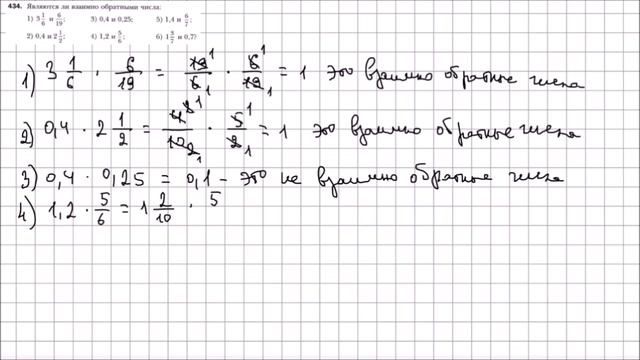 434. Являются ли взаимно обратными числа:
1) 3 1/6 и 6/19; 3) 0,4 и 0,25; 5) 1,4 и 6/7;
2) 0,4 и 2 1/2; 4) 1,2 и 5/6; 6) 1 3/7 и 0,7?
1) 3 1/6 · 6/19 = 19 1/6 1 · 6 1/19 1 = 1 это взаимно обратные числа
2) 0,4 · 2 1/2 = 4 2 1/10 2 1 · 5 1/2 1 = 1 это взаимно обратные числа
3) 0,4 · 0,25 = 0,1 – это не взаимно обратные числа
4) 1,2 · 5/6 = 1 2/10 · 5